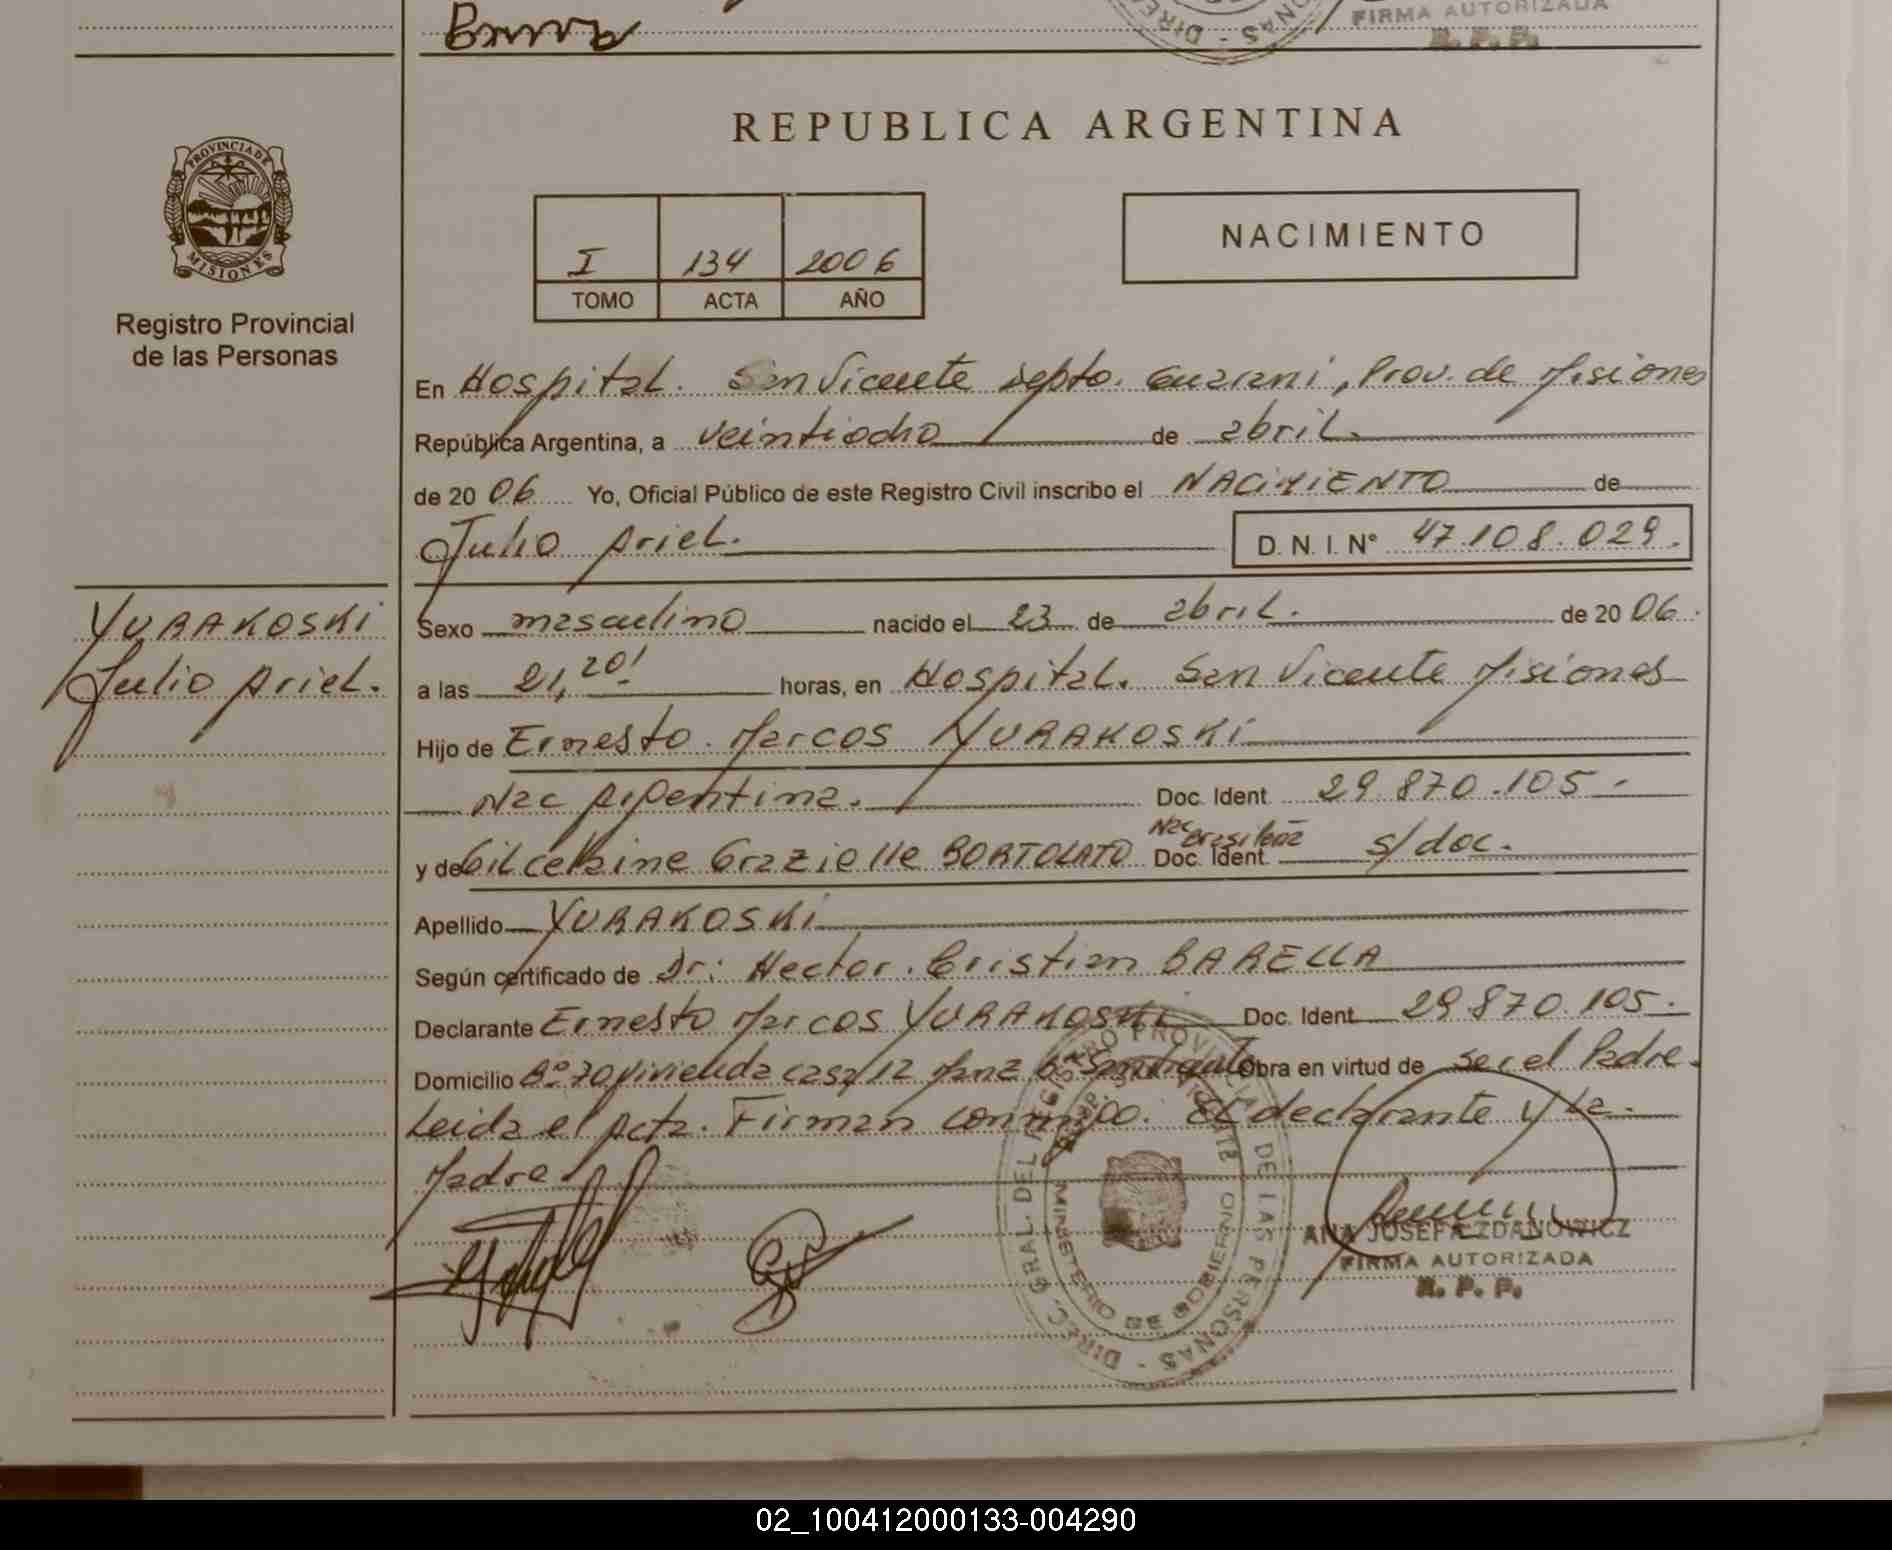 FIRMA AUTORIZADA
R. P. P.
DIREC
ONAS -
REPUBLICA ARGENTINA
PROVINCIA DE
MISIONES
Registro Provincial
de las Personas
I 134 2006
TOMO ACTA AÑO
NACIMIENTO
En Hospital. San Vicente Depto. Guarani, Prov. de Misiones
República Argentina, a veintiocho de abril.
de 20 06 Yo, Oficial Público de este Registro Civil inscribo el NACIMIENTO de
Julio Ariel. D. N. I. N° 47.108.029.
YURAKOSKI
Julio Ariel.
Sexo masculino nacido el 23 de abril. de 20 06.
a las 21,20' horas, en Hospital. San Vicente Misiones
Hijo de Ernesto Marcos YURAKOSKI
Nac Argentina. Doc. Ident. 29.870.105.-
y de Grazielle BORTOLATO Nac Brasileña Doc. Ident. s/doc.
Apellido YURAKOSKI
Según certificado de Dr: Hector Cristian BARELLA
Declarante Ernesto Marcos YURAKOSKI Doc. Ident. 29.870.105.-
Domicilio B° 70 vivienda casa 12 Manz 6 San Vicente Obra en virtud de ser el Padre.
Leida el Acta. Firman conmigo. El declarante y La.
Madre
DIREC. GRAL. DEL REGISTRO PROVINCIAL DE LAS PERSONAS -
MINISTERIO DE GOBIERNO
ANA JOSEFA ZDANOWICZ
FIRMA AUTORIZADA
R. P. P.
02_100412000133-004290